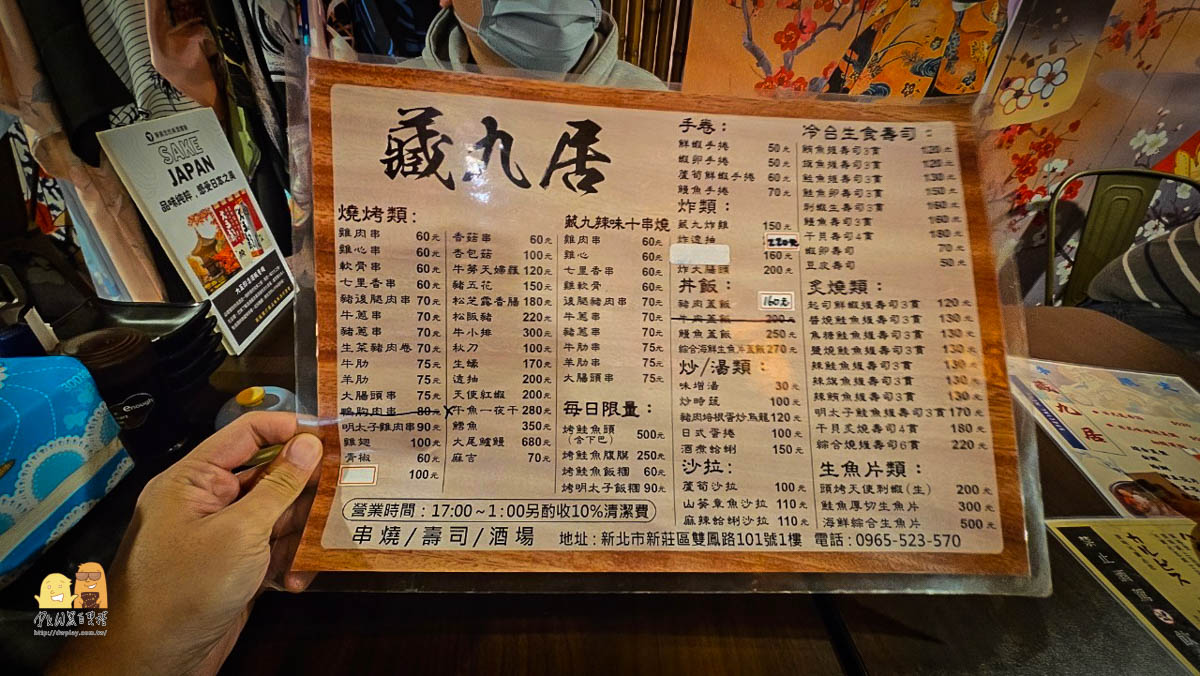 SAKE
JAPAN
品味純粹，感受日本之美
藏九居
燒烤類：
雞肉串 60元
雞心串 60元
軟骨串 60元
七里香串 60元
豬後腿肉串 70元
牛蔥串 70元
豬蔥串 70元
生菜豬肉卷 70元
牛肋 75元
羊肋 75元
大腸頭串 75元
鴨胸肉串 80元
明太子雞肉串 90元
雞翅 100元
青椒 60元
100元
香菇串 60元
杏包菇 100元
牛蒡天婦羅 120元
豬五花 150元
松芝露香腸 180元
松阪豬 220元
牛小排 300元
秋刀 100元
生蠔 170元
透抽 200元
天使紅蝦 200元
牛魚一夜干 280元
鱈魚 350元
大尾鱸鰻 680元
麻吉 70元
藏九辣味十串燒
雞肉串 60元
雞心 60元
七里香串 60元
雞軟骨 60元
後腿豬肉串 70元
牛蔥串 70元
豬蔥串 70元
牛肋串 75元
羊肋串 75元
大腸頭串 75元
每日限量：
烤鮭魚頭 500元
(含下巴)
烤鮭魚腹膘 250元
烤鮭魚飯糰 60元
烤明太子飯糰 90元
手卷：
鮮蝦手捲 50元
蝦卵手捲 50元
蘆筍鮮蝦手捲 60元
鰻魚手捲 70元
炸類：
藏九炸雞 150元
炸透抽 220元
160元
炸大腸頭 200元
丼飯：
豬肉蓋飯 160元
牛肉蓋飯 200元
鰻魚蓋飯 250元
綜合海鮮生魚丼蓋飯 270元
炒/湯類：
味增湯 30元
炒時蔬 100元
豬肉培根蛋炒烏龍 120元
日式蛋捲 100元
酒煮蛤蜊 150元
沙拉：
蘆筍沙拉 100元
山葵章魚沙拉 110元
麻辣蛤蜊沙拉 110元
冷台生食壽司：
鮪魚握壽司3貫 120元
旗魚握壽司3貫 120元
鮭魚握壽司3貫 130元
鮭魚卵壽司3貫 150元
刺蝦生壽司3貫 160元
鰻魚壽司3貫 160元
干貝壽司4貫 180元
蝦卵壽司 70元
豆皮壽司 50元
炙燒類：
起司鮮蝦握壽司3貫 120元
醬燒鮭魚握壽司3貫 130元
焦糖鮭魚握壽司3貫 130元
鹽燒鮭魚握壽司3貫 130元
辣鮭魚握壽司3貫 130元
辣旗魚握壽司3貫 130元
辣鮪魚握壽司3貫 130元
明太子鮭魚握壽司3貫 170元
干貝炙燒壽司4貫 180元
綜合燒握壽司6貫 220元
生魚片類：
頭烤天使刺蝦(生) 200元
鮭魚厚切生魚片 300元
海鮮綜合生魚片 500元
營業時間：17:00~1:00另酌收10%清潔費
串燒/壽司/酒場 地址：新北市新莊區雙鳳路101號1樓 電話：0965-523-570
藏九居
enough
300
http://dwplay.com.tw/